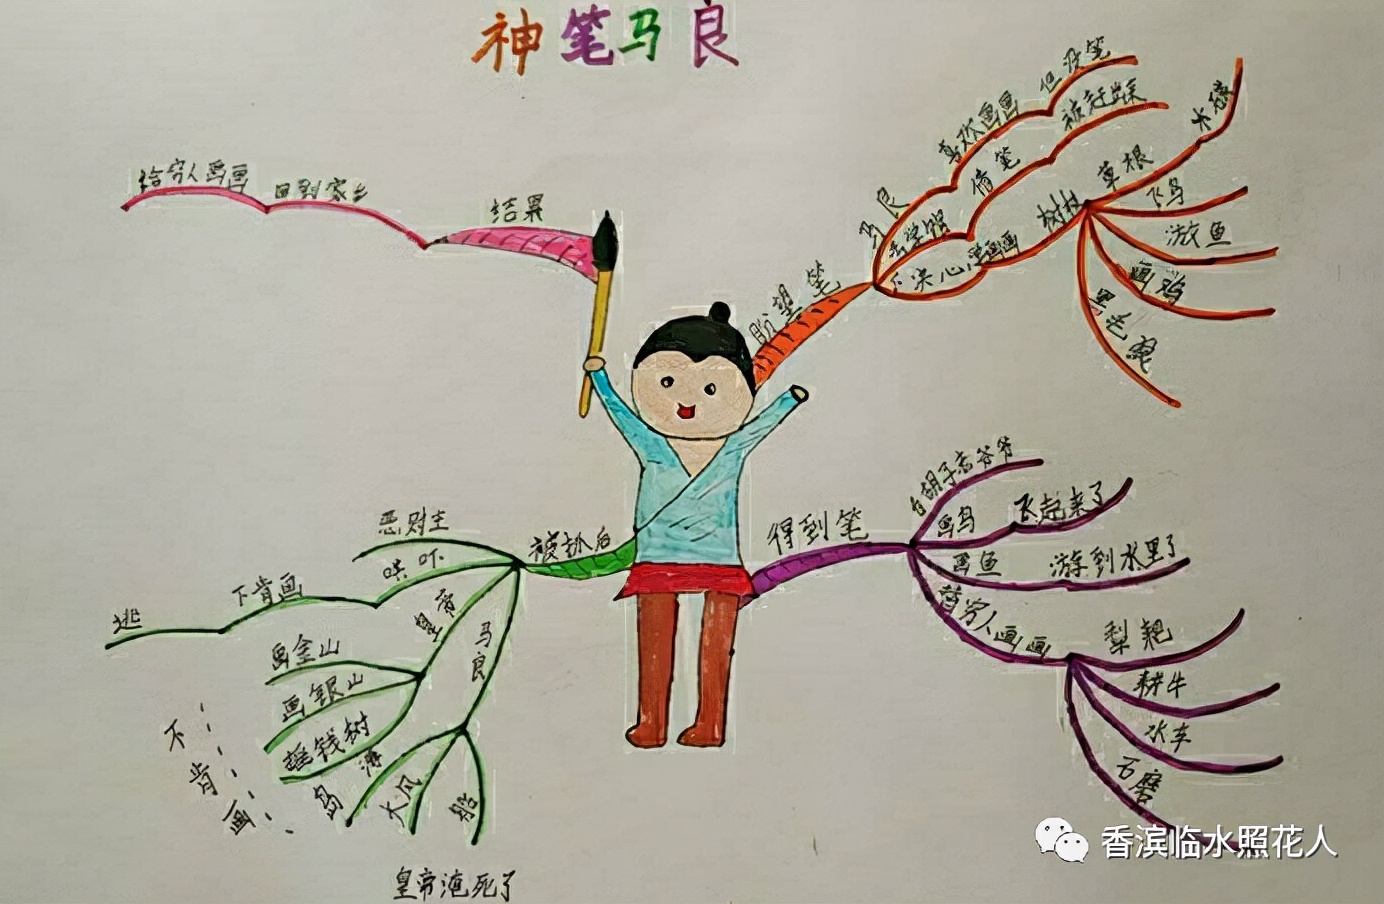 神笔马良
盼望笔
马良
喜欢画画
但没笔
去学馆
借笔
被赶出来
下决心学画画
树枝
草根
木碳
飞鸟
游鱼
画鸡
黑毛
得到笔
白胡子老爷爷
画鸟
飞起来了
画鱼
游到水里了
替穷人画画
犁耙
耕牛
水车
石磨
被抓后
恶财主
哄吓
不肯画
逃
皇帝
画金山
画银山
摇钱树
不肯画
马良
海
岛
大风
船
皇帝淹死了
结果
回到家乡
给穷人画画
香滨临水照花人